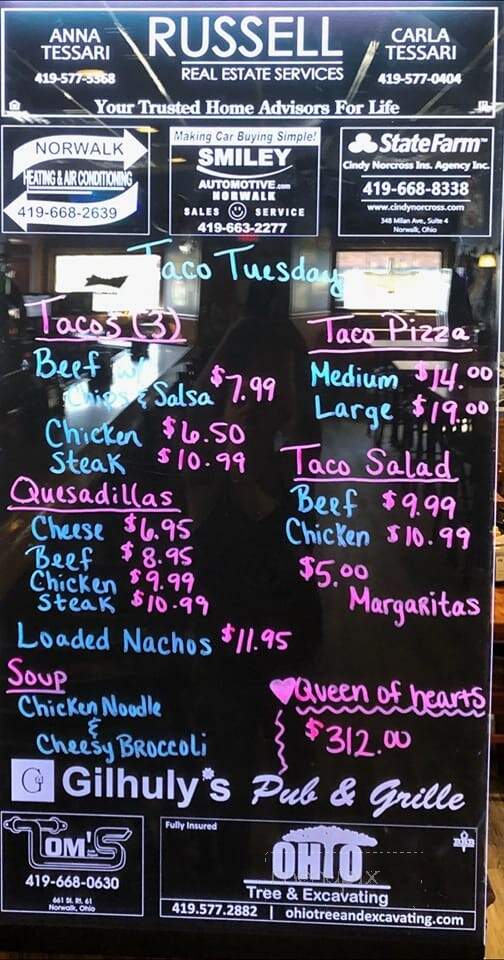 ANNA
TESSARI
419-577-3368
RUSSELL
REAL ESTATE SERVICES
CARLA
TESSARI
419-577-0404
Your Trusted Home Advisors For Life
NORWALK
HEATING & AIR CONDITIONING
419-668-2639
Making Car Buying Simple!
SMILEY
AUTOMOTIVE.com
NORWALK
SALES SERVICE
419-663-2277
StateFarm
Cindy Norcross Ins. Agency Inc.
419-668-8338
www.cindynorcross.com
348 Milan Ave., Suite 4
Norwalk, Ohio
Taco Tuesday
Tacos (3)
Beef w/
Chips & Salsa $7.99
Chicken $6.50
Steak $10.99
Quesadillas
Cheese $6.95
Beef $8.95
Chicken $9.99
Steak $10.99
Loaded Nachos $11.95
Soup
Chicken Noodle
&
Cheesy Broccoli
Taco Pizza
Medium $14.00
Large $19.00
Taco Salad
Beef $9.99
Chicken $10.99
$5.00
Margaritas
Queen of hearts
$312.00
G Gilhuly's Pub & Grille
TOM'S
419-668-0630
661 St. Rt. 61
Norwalk, Ohio
Fully Insured
OHIO
Tree & Excavating
419.577.2882 | ohiotreeandexcavating.com